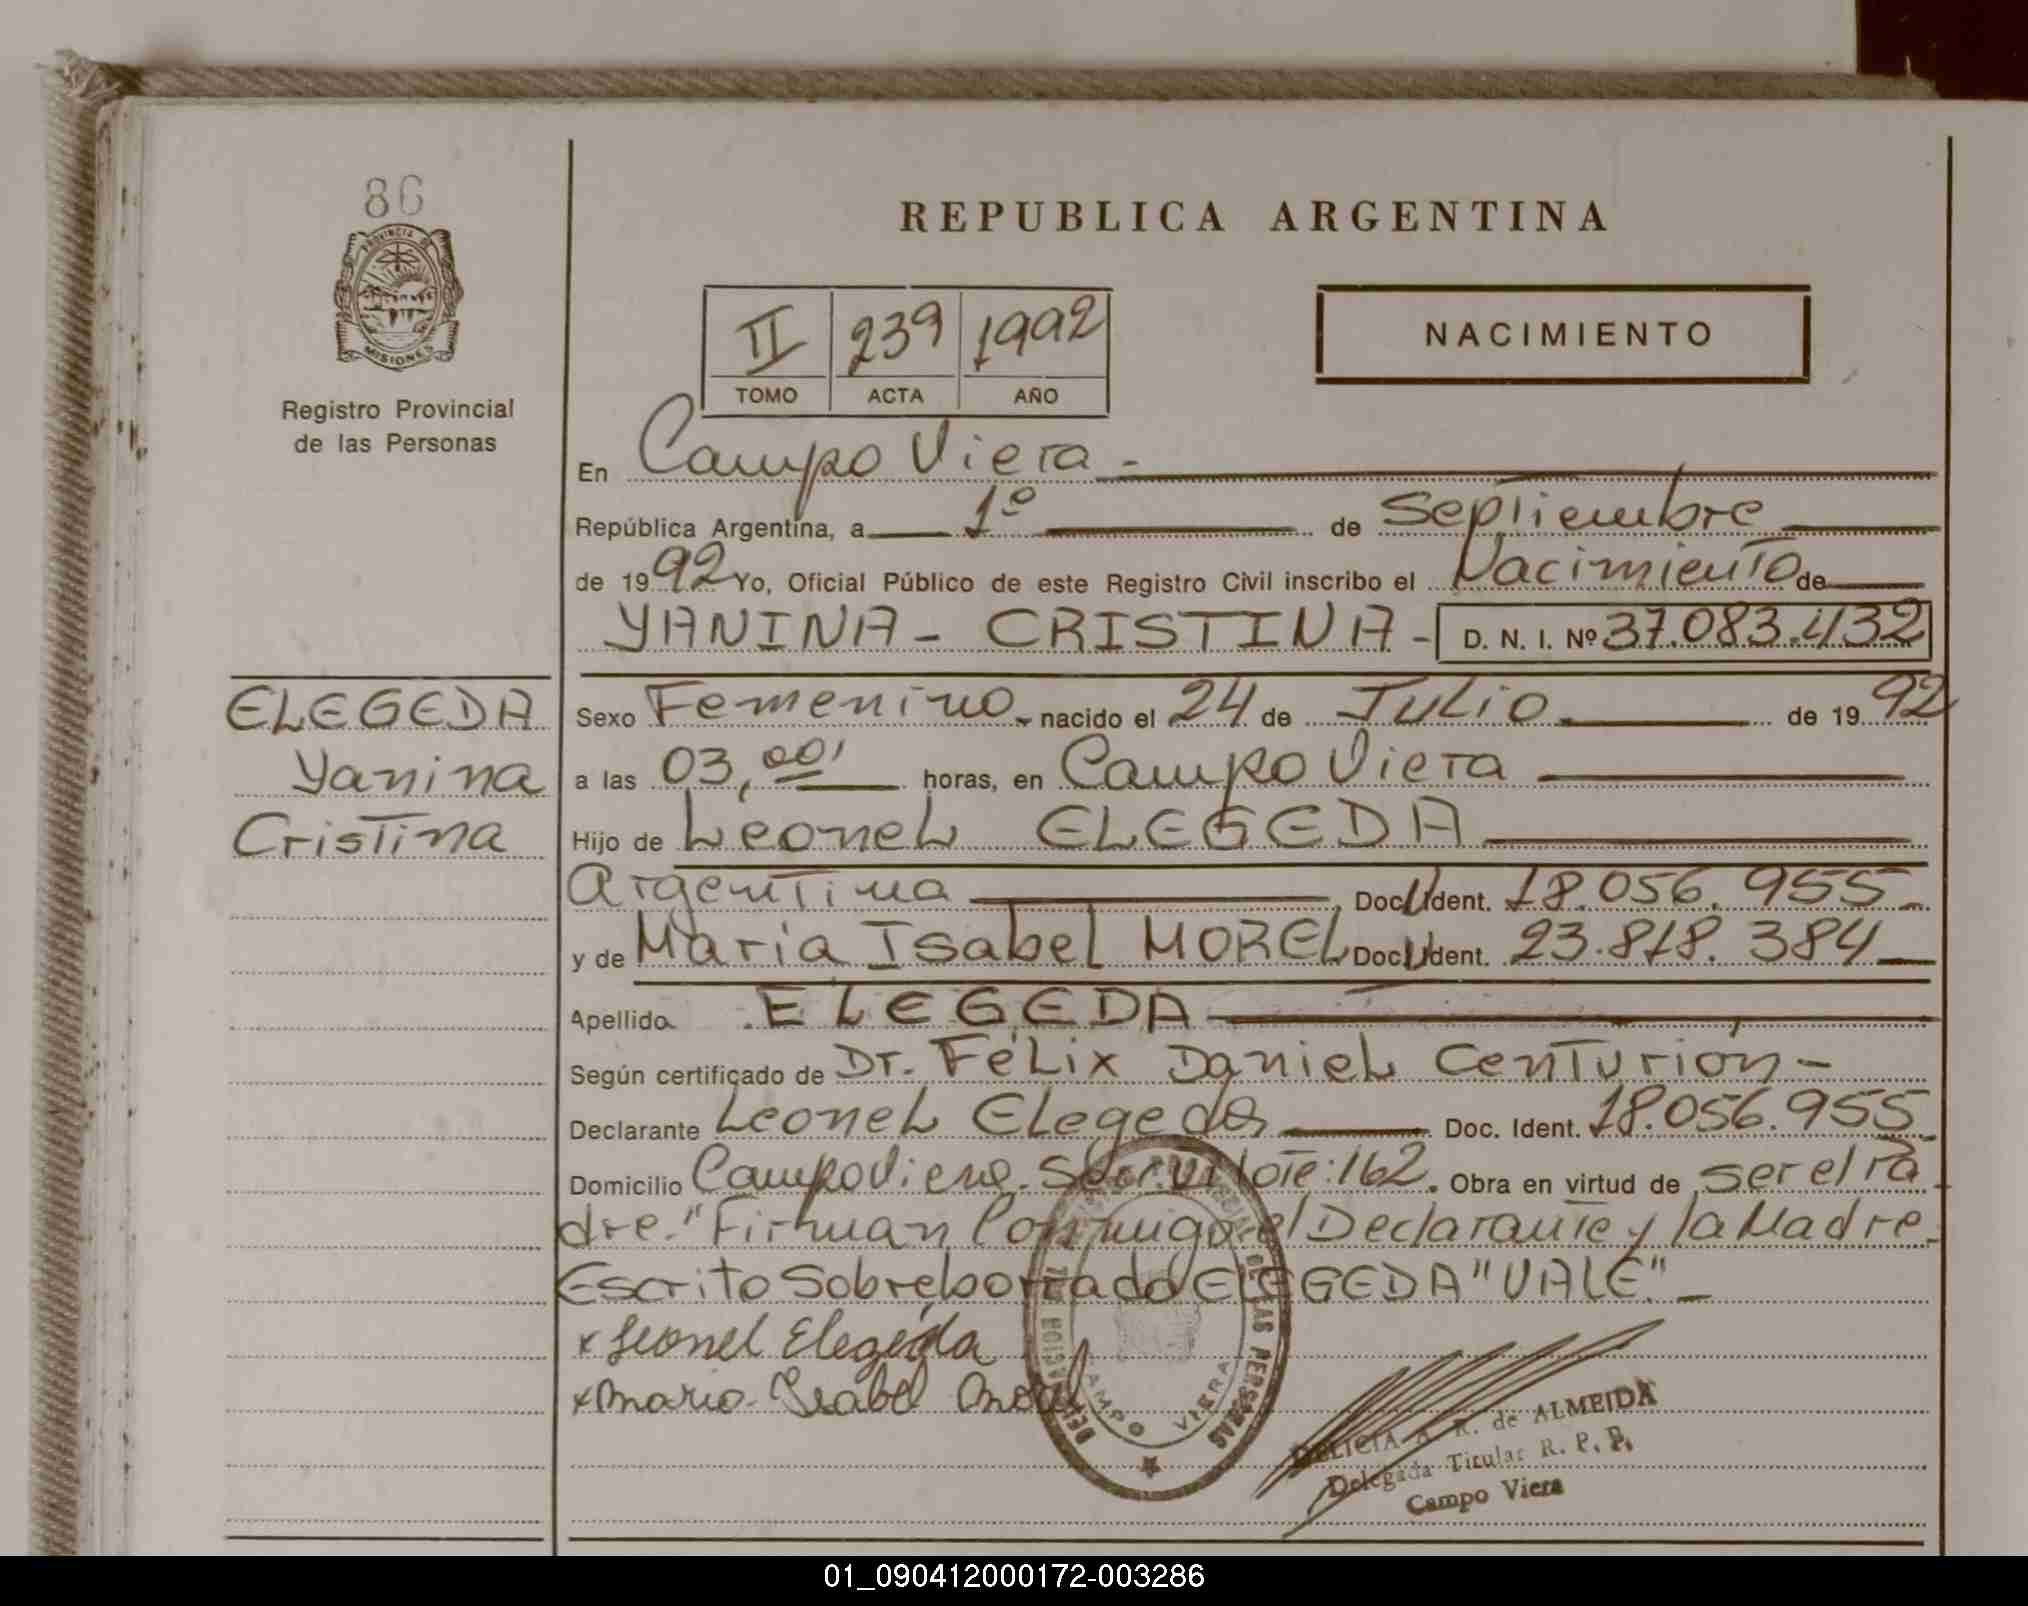 86
PROVINCIA DE
MISIONES
Registro Provincial
de las Personas
REPUBLICA ARGENTINA
II 239 1992
TOMO ACTA AÑO
NACIMIENTO
En Campo Viera -
República Argentina, a 1º de Septiembre
de 1992 Yo, Oficial Público de este Registro Civil inscribo el Nacimiento de
YANINA - CRISTINA - D. N. I. Nº 37.083.432
ELEGEDA
Yanina
Cristina
Sexo Femenino - nacido el 24 de Julio de 1992
a las 03,00' horas, en Campo Viera
Hijo de Leonel ELEGEDA
Argentina Doc. Ident. 18.056.955
y de Maria Isabel MOREL Doc. Ident. 23.818.384
Apellido ELEGEDA
Según certificado de Dr. Félix Daniel Centurión -
Declarante Leonel Elegeda Doc. Ident. 18.056.955
Domicilio Campo Viera. Lote: 162. Obra en virtud de ser el Pa
dre. "Firman Conmigo el Declarante y la Madre.
Escrito Sobreborrado ELEGEDA "VALE". -
x Leonel Elegeda
x Maria Isabel Morel
DE LAS PERSONAS
CAMPO VIERA
DELICIA A. R. de ALMEIDA
Delegada Titular R. P. P.
Campo Viera
01_090412000172-003286